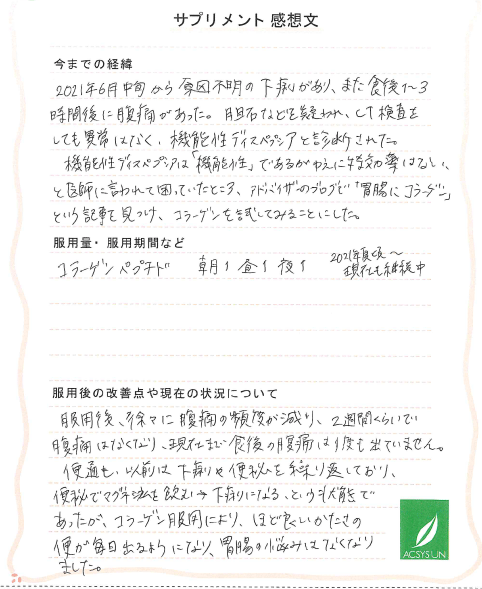 サプリメント 感想文
今までの経緯
2021年6月中旬から原因不明の下痢があり、また食後1〜3
時間後に腹痛があった。胆石などを疑われ、CT検査を
しても異常はなく、機能性ディスペプシアと診断された。
機能性ディスペプシアは「機能性」であるがゆえに特効薬はない、
と医師に言われて困っていたところ、アドバイザーのブログで「胃腸にコラーゲン」
という記事を見つけ、コラーゲンを試してみることにした。
服用量・服用期間など
コラーゲンペプチド 朝1 昼1 夜1 2021年夏頃〜
現在も継続中
服用後の改善点や現在の状況について
服用後、徐々に腹痛の頻度が減り、2週間くらいで
腹痛はなくなり、現在まで食後の腹痛は1度も出ていません。
便通も、以前は下痢や便秘を繰り返しており、
便秘でマグネシウムを飲む→下痢になる、という状態で
あったが、コラーゲン服用により、ほど良いかたさの
便が毎日出るようになり、胃腸の悩みはなくなり
ました。
ACSYSUN